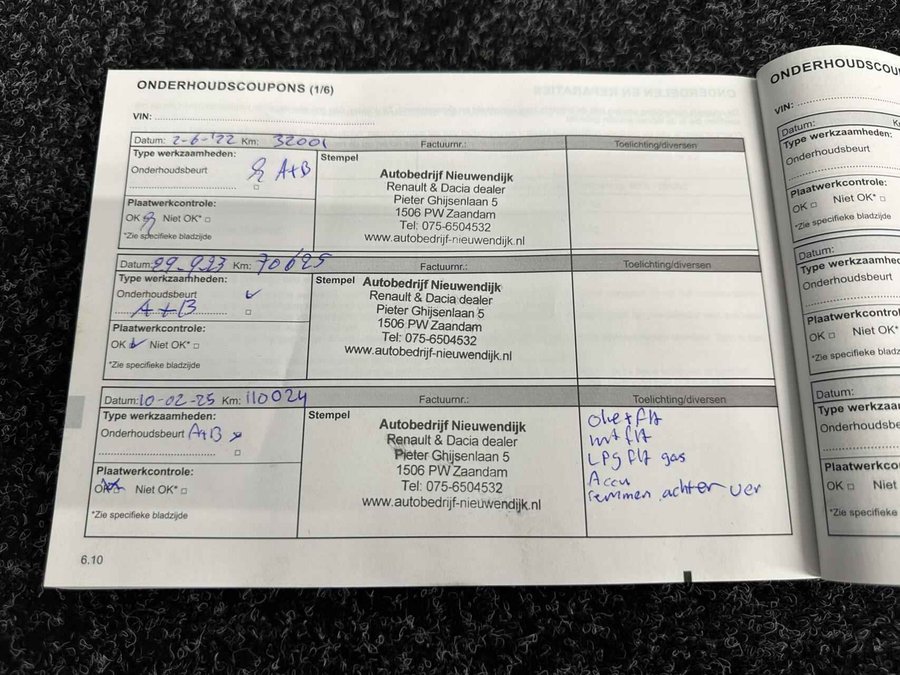 ONDERHOUDSCOUPONS (1/6)
VIN:
Datum: 2-6-'22 Km: 32001 Factuurnr.: Toelichting/diversen
Type werkzaamheden:
Onderhoudsbeurt A+B
Plaatwerkcontrole:
OK Niet OK*
*Zie specifieke bladzijde
Stempel
Autobedrijf Nieuwendijk
Renault & Dacia dealer
Pieter Ghijsenlaan 5
1506 PW Zaandam
Tel: 075-6504532
www.autobedrijf-nieuwendijk.nl
Datum: 29-9-23 Km: 70625 Factuurnr.: Toelichting/diversen
Type werkzaamheden:
Onderhoudsbeurt
A+B
Plaatwerkcontrole:
OK Niet OK*
*Zie specifieke bladzijde
Stempel
Autobedrijf Nieuwendijk
Renault & Dacia dealer
Pieter Ghijsenlaan 5
1506 PW Zaandam
Tel: 075-6504532
www.autobedrijf-nieuwendijk.nl
Datum: 10-02-25 Km: 110024 Factuurnr.: Toelichting/diversen
Type werkzaamheden:
Onderhoudsbeurt A+B
Plaatwerkcontrole:
OK Niet OK*
*Zie specifieke bladzijde
Stempel
Autobedrijf Nieuwendijk
Renault & Dacia dealer
Pieter Ghijsenlaan 5
1506 PW Zaandam
Tel: 075-6504532
www.autobedrijf-nieuwendijk.nl
olie + flt
int flt
LPg flt gas
Accu
remmen achter ver
6.10
ONDERHOUDSCOU
VIN:
Datum:
Type werkzaamheden:
Onderhoudsbeurt
Plaatwerkcontrole:
OK Niet OK*
*Zie specifieke bladzijde
Datum:
Type werkzaamhe
Onderhoudsbeurt
Plaatwerkcontrol
OK Niet OK*
*Zie specifieke bladz
Datum:
Type werkzaa
Onderhoudsbe
Plaatwerkcont
OK Niet
*Zie specifieke